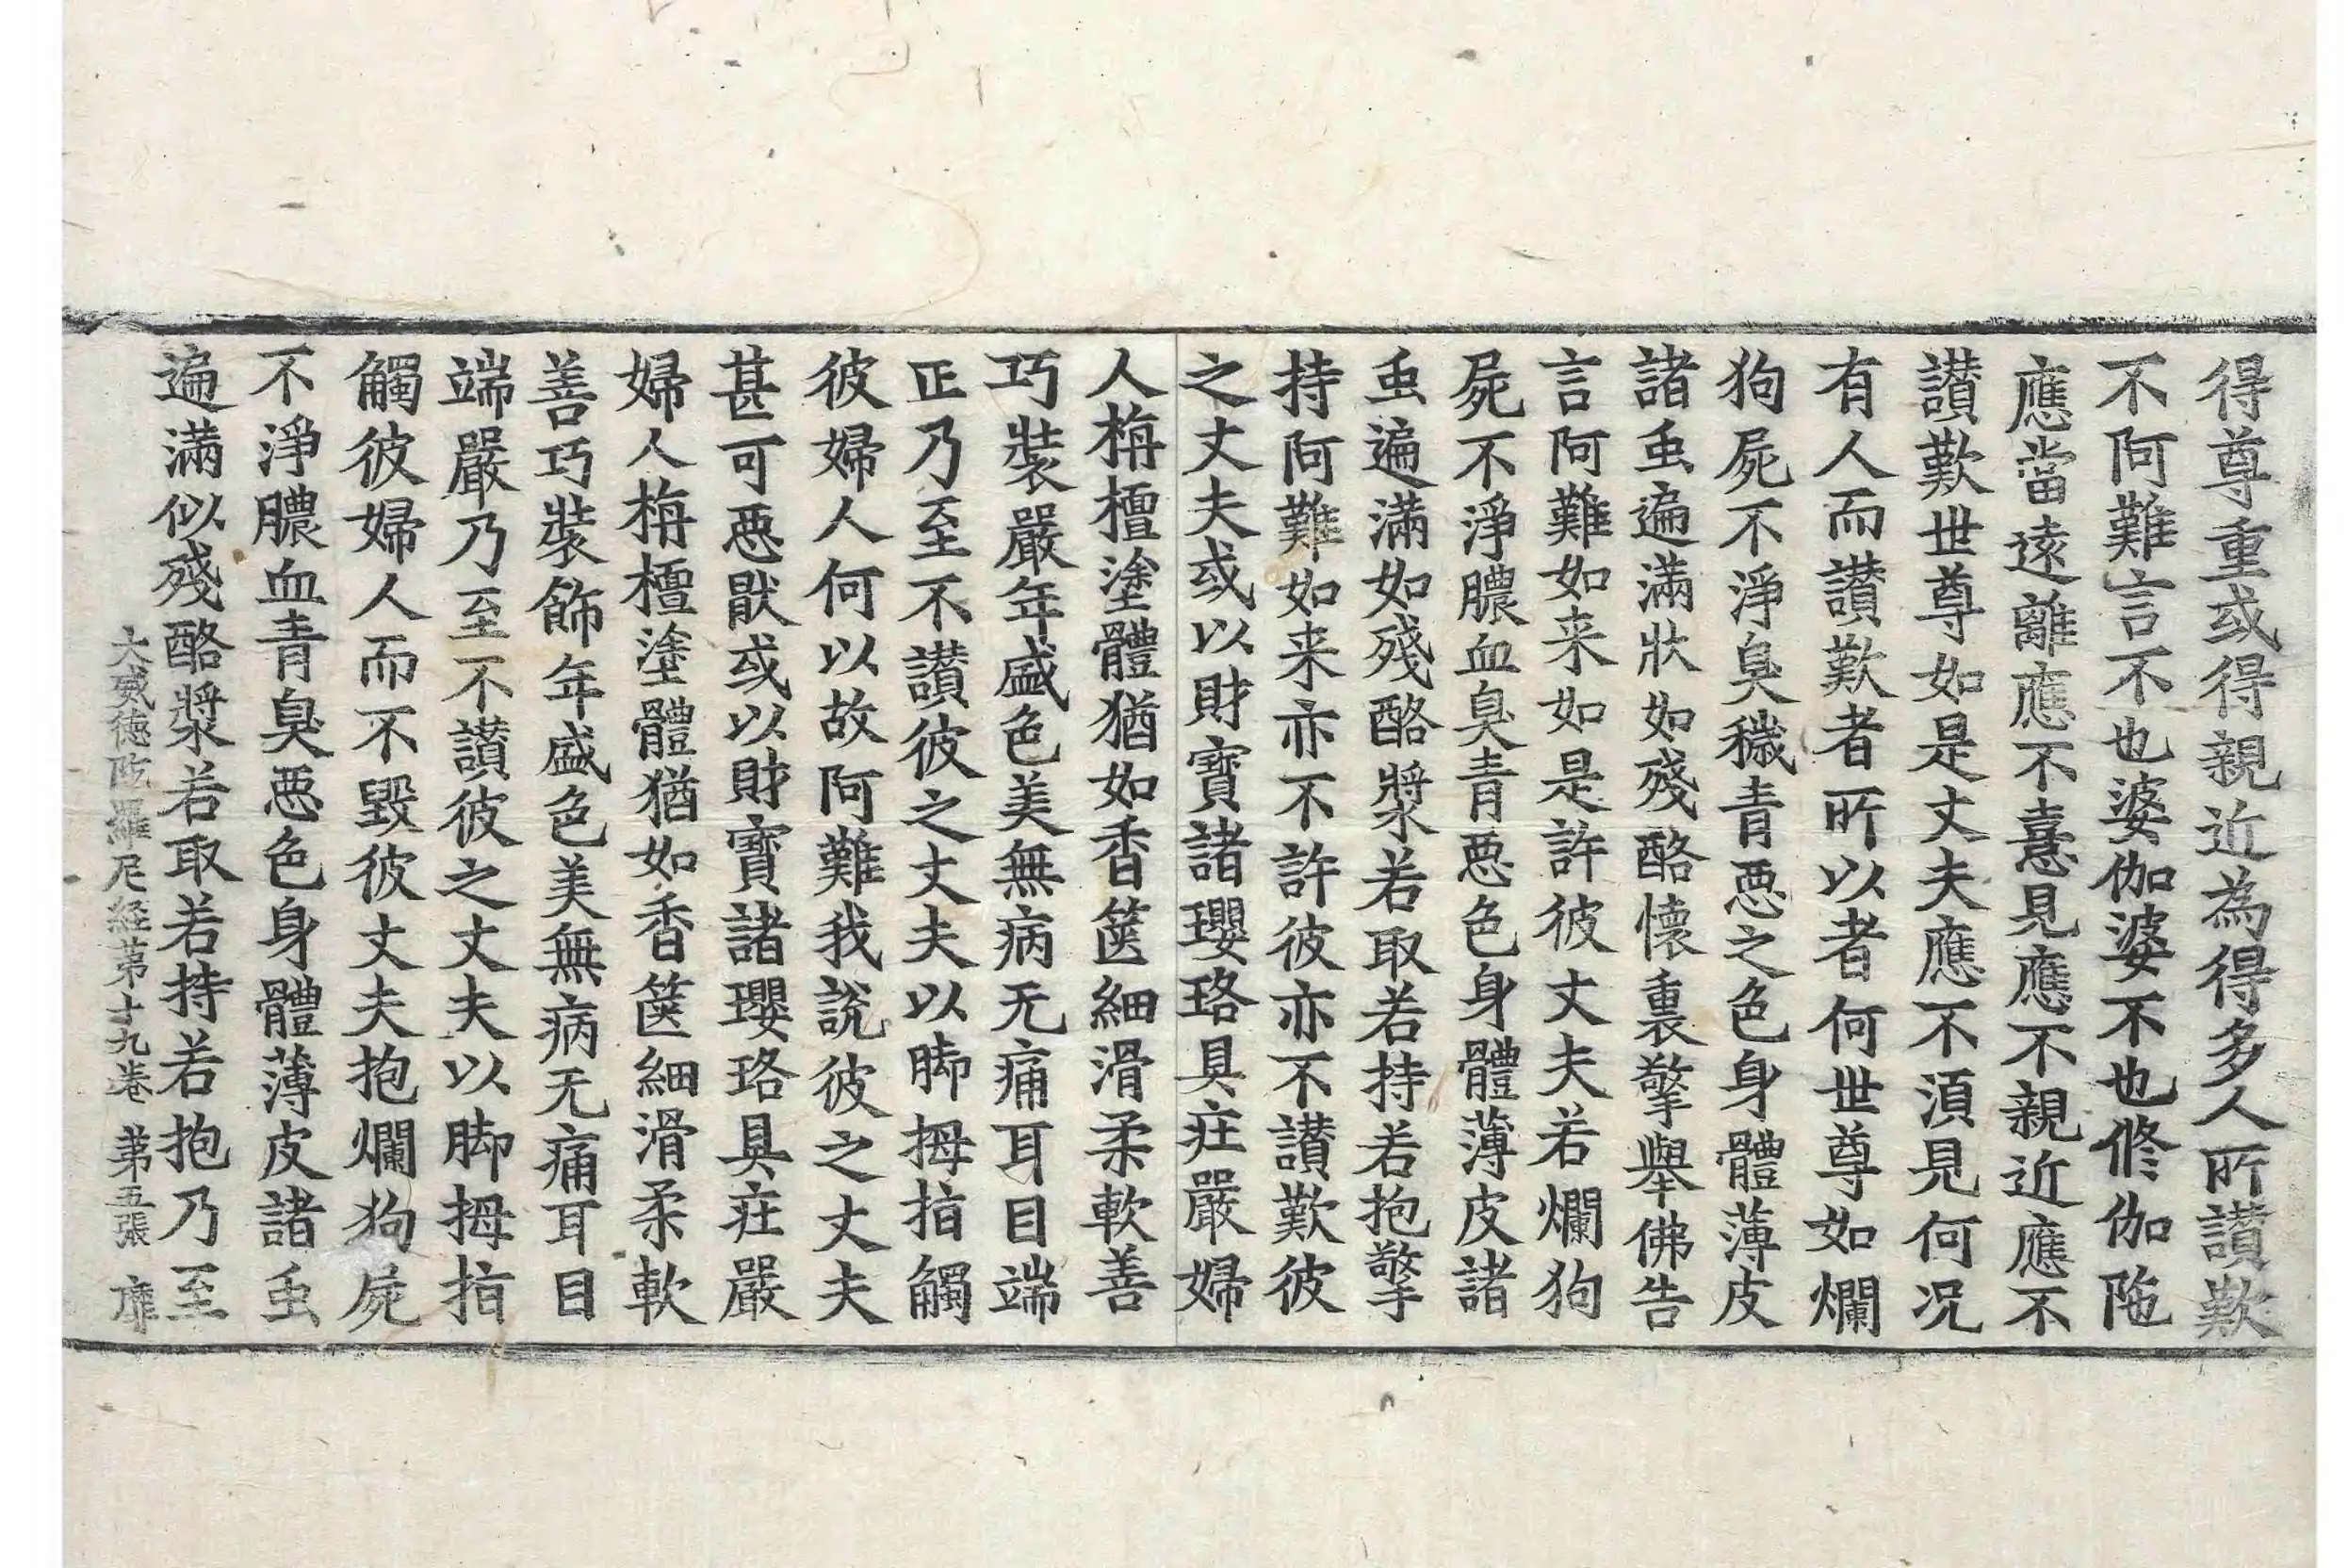 得尊重或得親近為得多人所讃歎
不阿難言不也婆伽婆不也修伽陁
應當遠離應不憙見應不親近應不
讃歎世尊如是丈夫應不湏見何况
有人而讃歎者所以者何世尊如爛
狗屍不淨臭穢青惡之色身體薄皮
諸䖝遍滿狀如殘酪懷裏擎舉佛告
言阿難如来如是許彼丈夫若爛狗
屍不淨膿血臭青惡色身體薄皮諸
䖝遍滿如殘酪漿若取若持若抱擎
持阿難如来亦不許彼亦不讃歎彼
之丈夫或以財寶諸瓔珞具莊嚴婦
人栴檀塗體猶如香篋細滑柔軟善
巧裝嚴年盛色美無病无痛耳目端
正乃至不讃彼之丈夫以脚拇指觸
彼婦人何以故阿難我說彼之丈夫
甚可惡猒或以財寶諸瓔珞具莊嚴
婦人栴檀塗體猶如香篋細滑柔軟
善巧裝飾年盛色美無病无痛耳目
端嚴乃至不讃彼之丈夫以脚拇指
觸彼婦人而不毀彼丈夫抱爛狗屍
不淨膿血青臭惡色身體薄皮諸䖝
遍滿似殘酪漿若取若持若抱乃至
大威德陁羅尼経苐十九卷 苐五張 靡